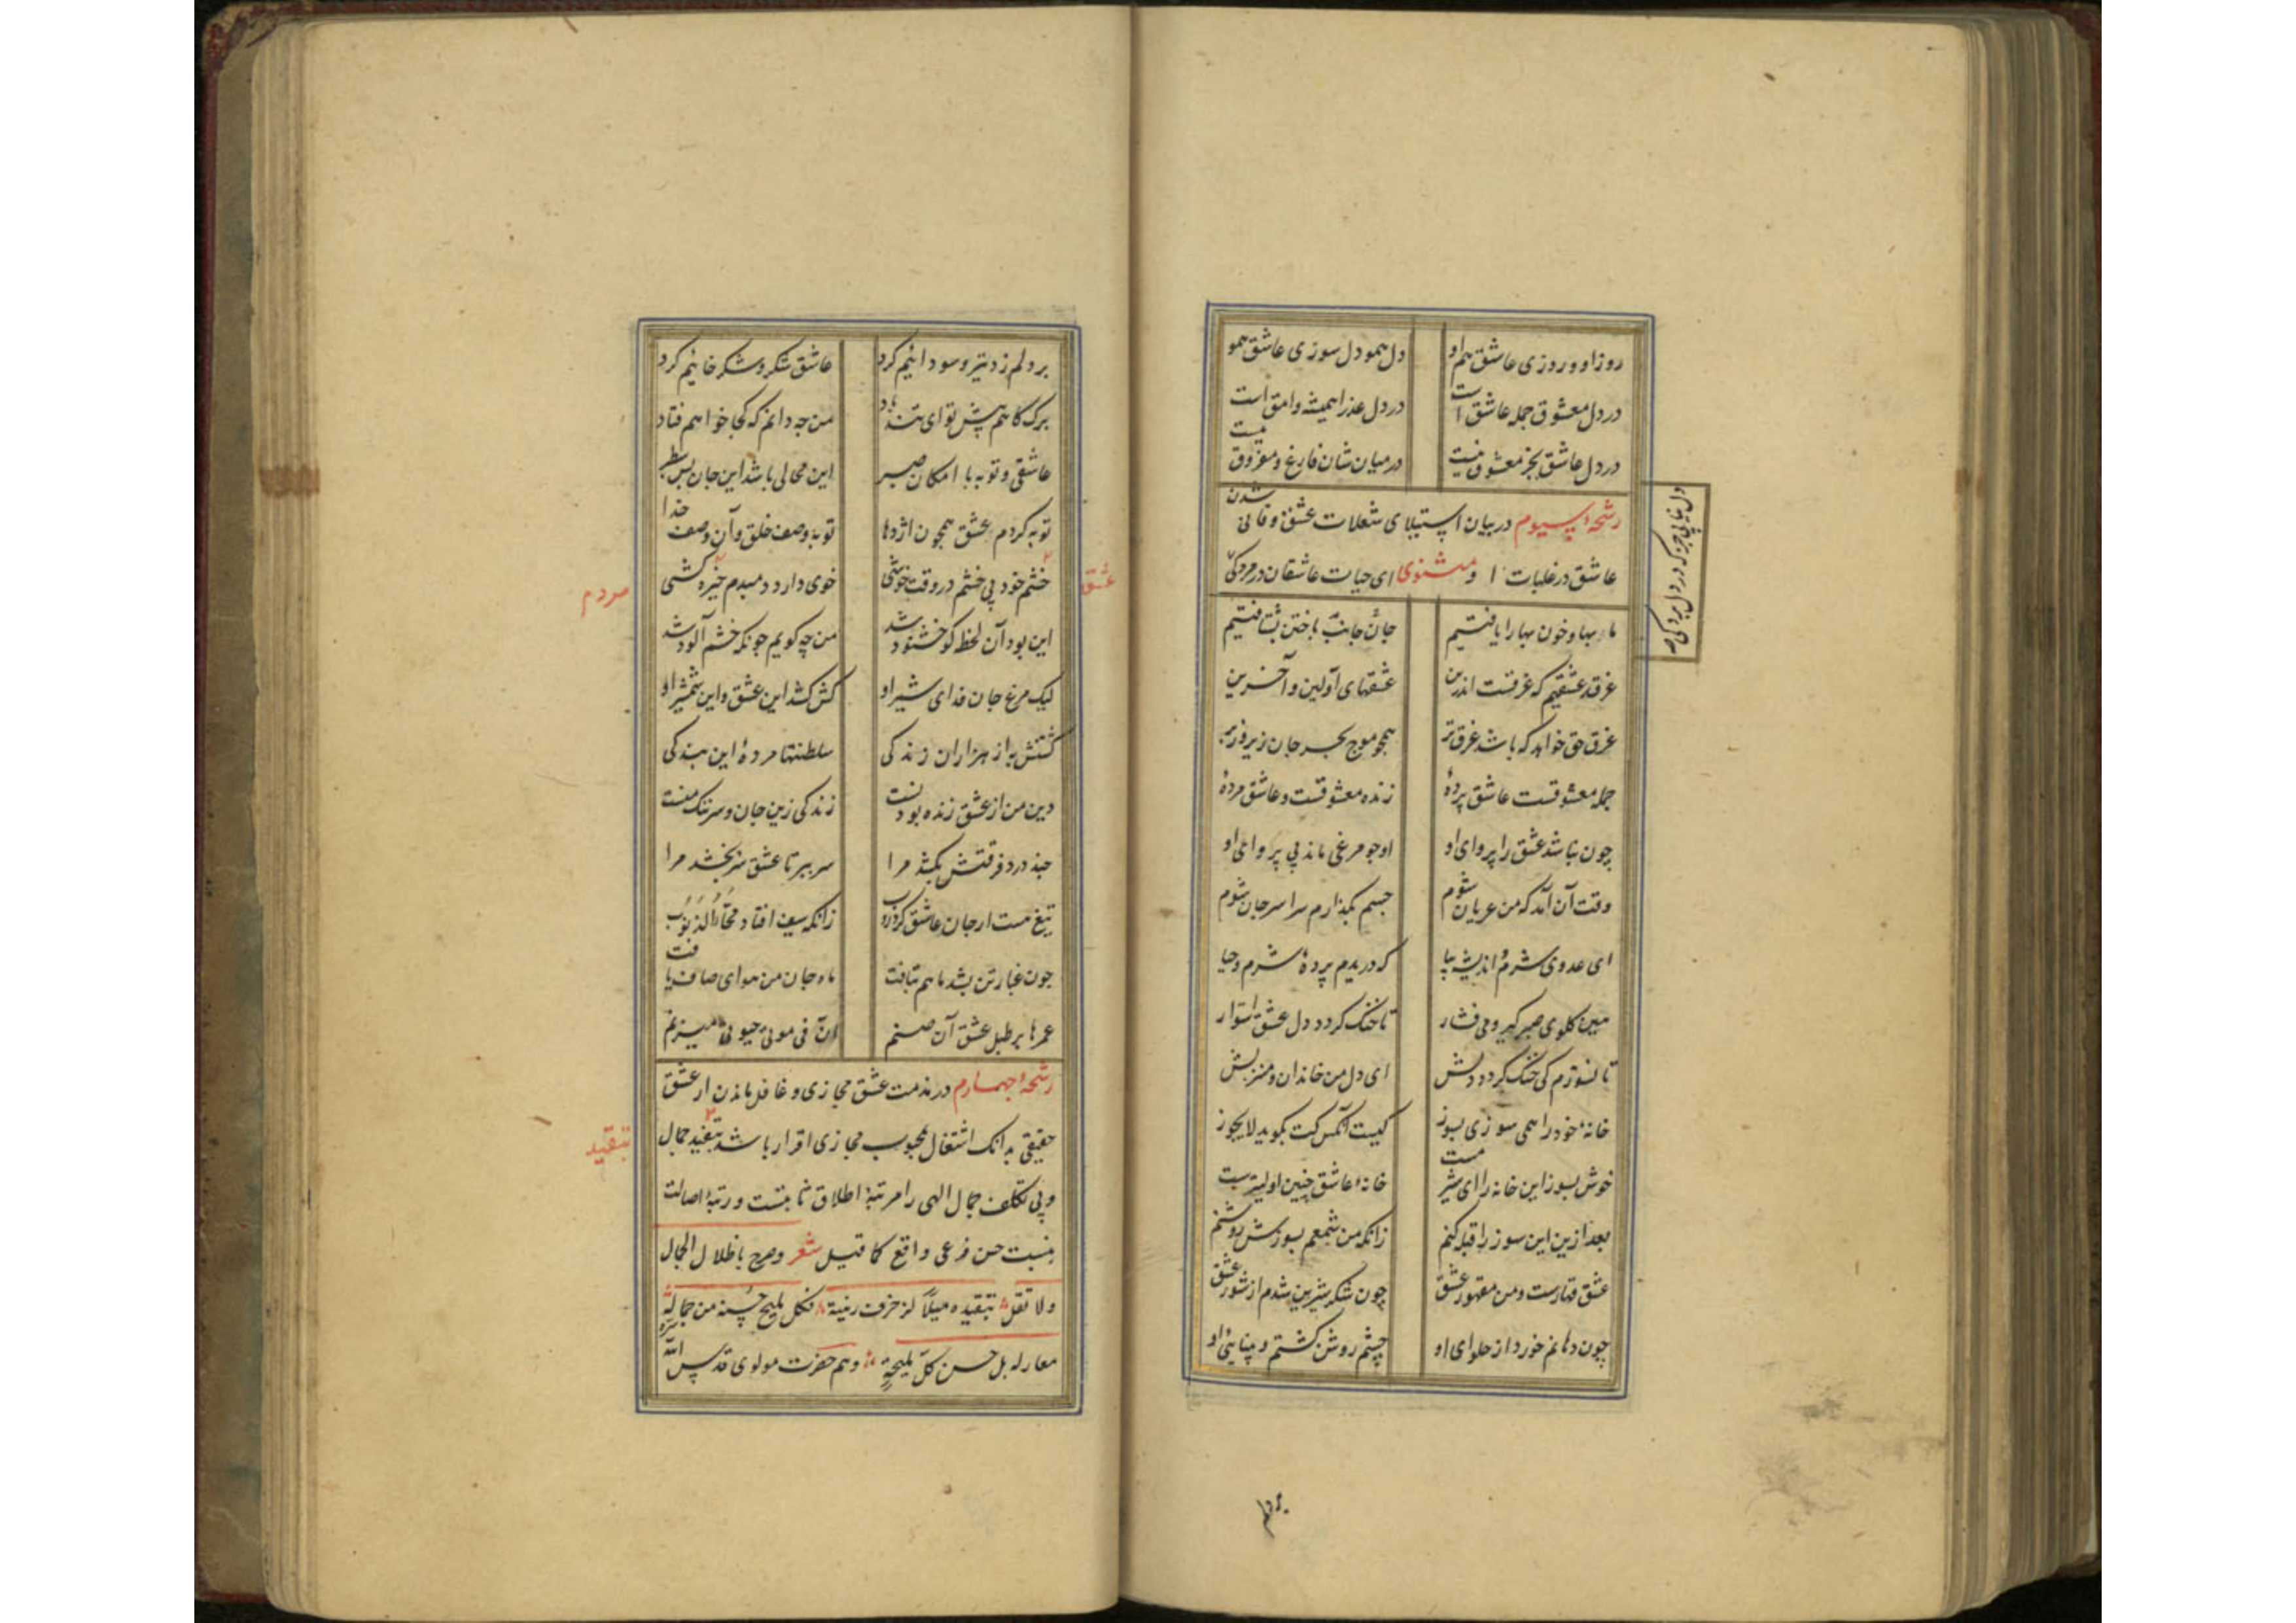 روز او و روزی عاشق هم او دل همو دل سوزی عاشق همو
در دل معشوق جمله عاشق است در دل عذرا همیشه وامق است
در دل عاشق بجز معشوق نیست در میان شان فارغ و مفروق نیست
رشحهٔ سیوم در بیان استیلای شعلات عشق و فانی شدن
عاشق در غلبات ا و مثنوی ای حیات عاشقان در مردکی
دل نیابی جز که در دل بردکی
ما بها و خون بها را یافتیم جانب جان باختن بشتافتیم
غرقه عشقیم که غرقست اندرین عشقهای اولین و آخرین
غرق حق خواهد که باشد غرق تر همچو موج بحر جان زیر و زبر
جمله معشوقست عاشق پردهٔ زنده معشوقست و عاشق مردهٔ
چون نباشد عشق را پروای او او چو مرغی ماند بی پر وای او
وقت آن آمد که من عریان شوم جسم بگذارم سراسر جان شوم
ای عدوی شرم و اندیشه بیا که دریدم پردهٔ شرم و حیا
هین کلوی صبر کیر و می فشار تا خنک کردد دل عشق استوار
تا نسوزم کی خنک کردد دلش ای دل من خاندان و منزلش
خانهٔ خود را همی سوزی بسوز کیست آنکس کت بکوید لایجوز
خوش بسوز این خانه را ای شیر مست خانهٔ عاشق چنین اولیترست
بعد ازین این سوز را قبله کنم زانکه من شمعم بسوزش روشنم
عشق قهارست و من مقهور عشق چون شکر شیرین شدم از شور عشق
چون دهانم خورد از حلوای او چشم روشن کشتم و بینای او
بر دلم زد تیر و سوداییم کرد عاشق شکر و شکر خاییم کرد
برک کاهم پیش تو ای تند باد من چه دانم که کجا خواهم فتاد
عاشقی و توبه یا امکان صبر این محالی باشد این جان بس سطبر
توبه کردم عشق همچون اژدها توبه وصف خلق و آن وصف خدا
عشق
خشم خود بی خشم در وقت خوشی خوی دارد دمبدم خیره کشی
مردم
این بود آن لحظه کو خشنود شد من چه کویم چونکه خشم آلود شد
لیک مرغ جان فدای شیر او کش کشد این عشق و این شمشیر او
کشتنش به از هزاران زندکی سلطنتها مردهٔ این بندکی
دین من از عشق زنده بودنست زندکی زین جان و سر ننک منست
چند درد فرقتش بکشد مرا سر ببر تا عشق سر بخشد مرا
تیغ هست از جان عاشق کرد روب زانکه سیف افتاد محّاء الذنوب
چون غبار تن بشد ماهم تبافت ماه جان من هوای صاف یافت
عمرها بر طبل عشق آن صنم ان فی موتی حیوتی میزنم
رشحهٔ چهارم در مذمت عشق مجازی و غافل ماندن از عشق
حقیقی بدانک اشتغال بمحبوب مجازی اقرار باشد بتقیید جمال
تبقید
وبی تکلف جمال الهی را مرتبهٔ اطلاق ثابتست و رتبهٔ اصالت
بنسبت حسن فرعی واقع کما قیل شعر وصرح باطلاق الجمال
ولا تقل بتقییده میلاً لزخرف زینة فکل ملیح حسنه من جماله
معار له بل حسن کلّ ملیحةٍ وهم حضرت مولوی قدس الله سره